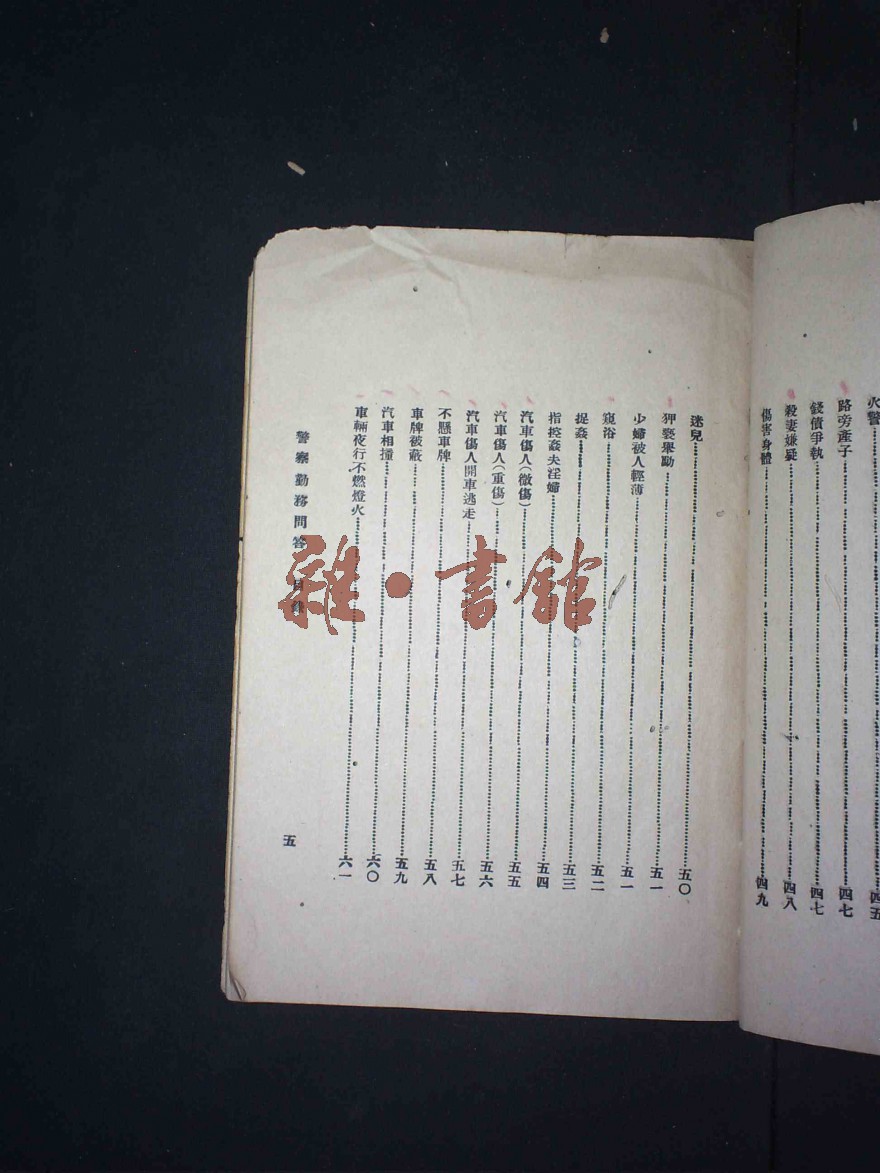 火警……四五
路旁產子……四七
錢債爭執……四七
殺妻嫌疑……四八
傷害身體……四九
迷兒……五〇
狎褻舉動……五一
少婦被人輕薄……五一
窺浴……五二
捉姦……五三
指控姦夫淫婦……五四
汽車傷人(微傷)……五五
汽車傷人(重傷)……五六
汽車傷人開車逃走……五七
不懸車牌……五八
車牌被蔽……五九
汽車相撞……六〇
車輛夜行不燃燈火……六一
警察勤務問答 目錄
五
雜·書館